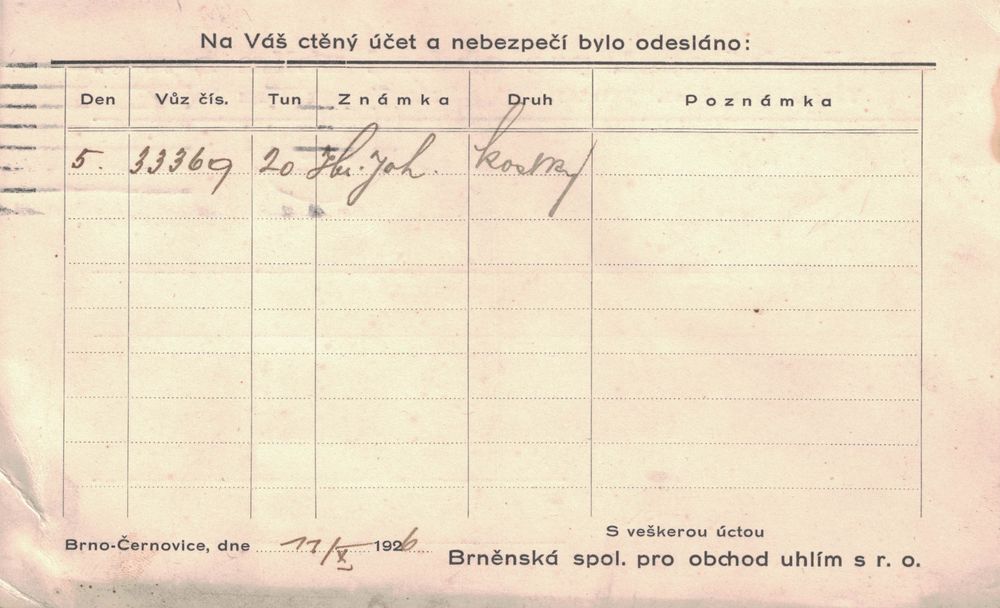 Na Váš ctěný účet a nebezpečí bylo odesláno:
Den Vůz čís. Tun Známka Druh Poznámka
5. 33369 20 Joh. kostky
Brno-Černovice, dne 11/X 1926
S veškerou úctou
Brněnská spol. pro obchod uhlím s r. o.